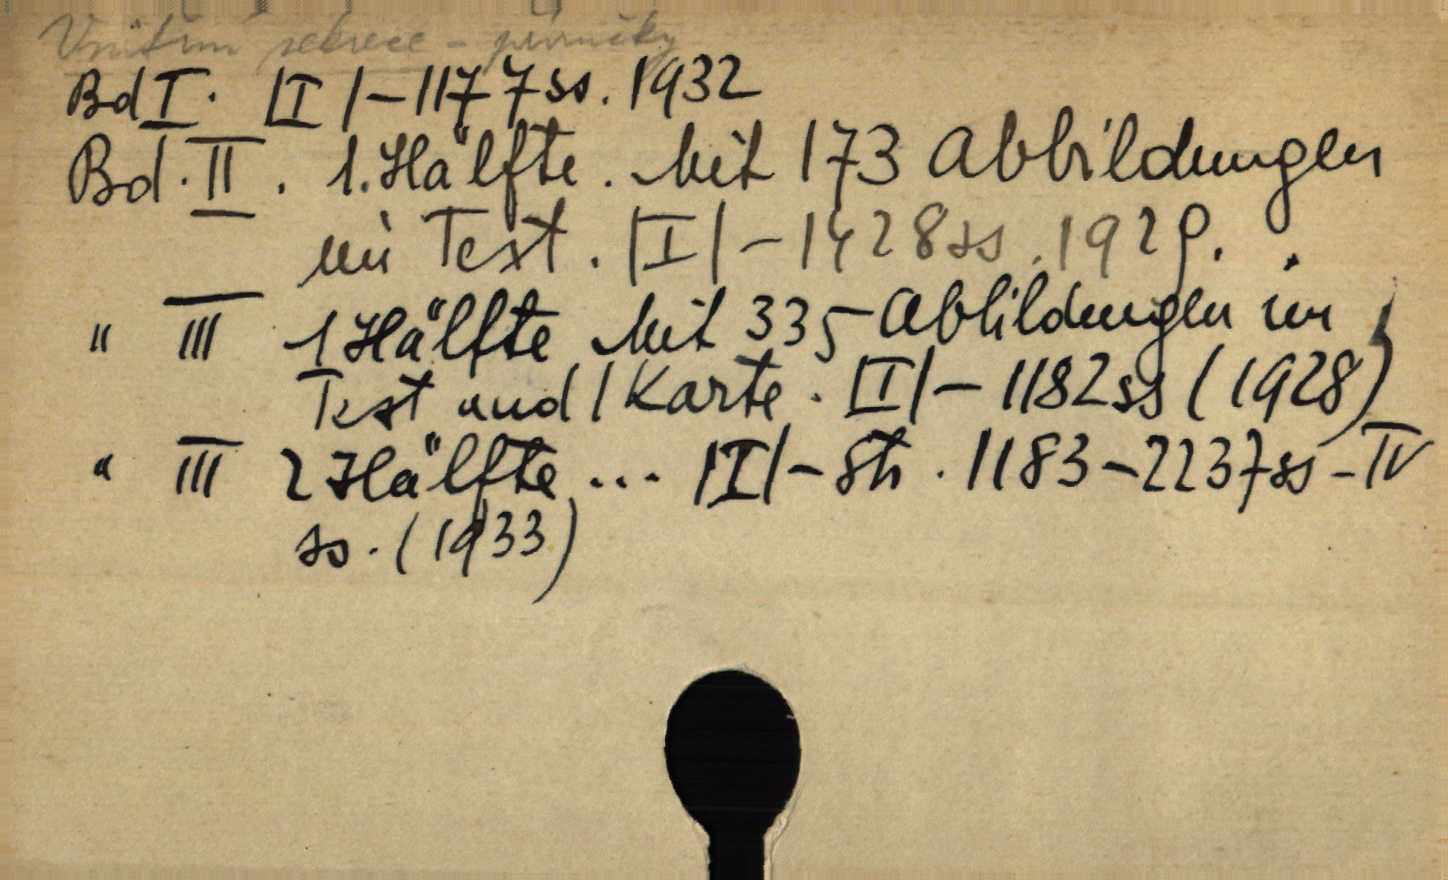 Vnitřní sekrece - příručky
Bd I. |I|-1177ss. 1932
Bd. II. 1. Hälfte. Mit 173 Abbildungen
im Text. |I|-1428ss. 1929.
" III 1 Hälfte Mit 335 Abbildungen im
Text und 1 Karte. |I|-1182ss (1928)
" III 2 Hälfte ... |I|-8h. 1183-2237ss-IV
ss. (1933)